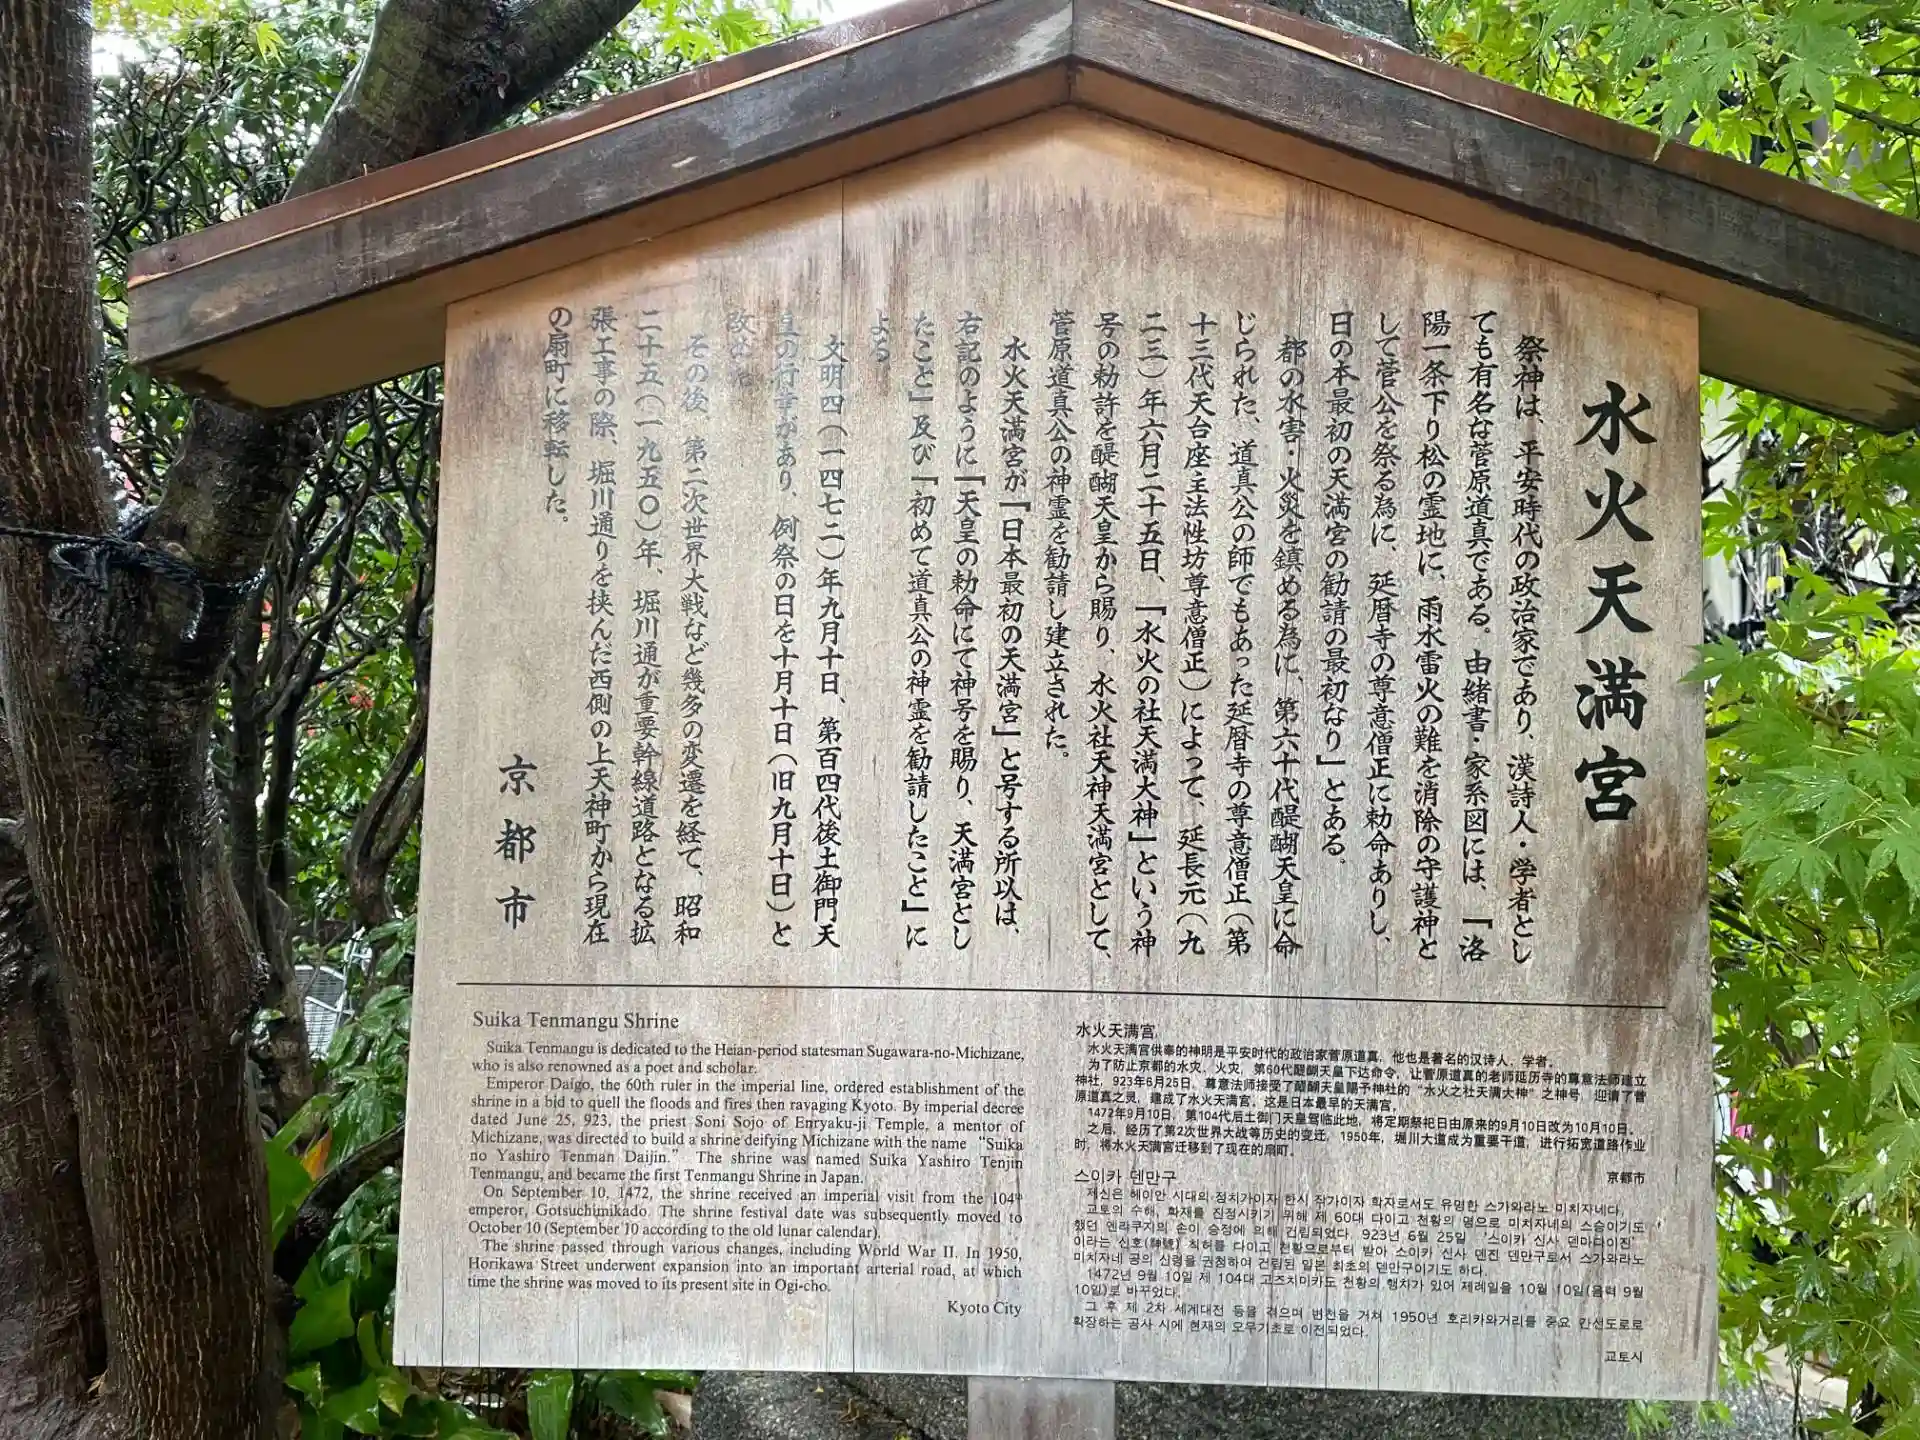 水火天満宮
祭神は、平安時代の政治家であり、漢詩人・学者とし
ても有名な菅原道真である。由緒書・家系図には、「洛
陽一条下り松の霊地に、雨水雷火の難を消除の守護神と
して菅公を祭る為に、延暦寺の尊意僧正に勅命ありし、
日の本最初の天満宮の勧請の最初なり」とある。
都の水害・火災を鎮める為に、第六十代醍醐天皇に命
じられた、道真公の師でもあった延暦寺の尊意僧正（第
十三代天台座主法性坊尊意僧正）によって、延長元（九
二三）年六月二十五日、「水火の社天満大神」という神
号の勅許を醍醐天皇から賜り、水火社天神天満宮として、
菅原道真公の神霊を勧請し建立された。
水火天満宮が「日本最初の天満宮」と号する所以は、
右記のように「天皇の勅命にて神号を賜り、天満宮とし
たこと」及び「初めて道真公の神霊を勧請したこと」に
よる
文明四（一四七二）年九月十日、第百四代後土御門天
皇の行幸があり、例祭の日を十月十日（旧九月十日）と
改め
その後、第二次世界大戦など幾多の変遷を経て、昭和
二十五（一九五〇）年、堀川通が重要幹線道路となる拡
張工事の際、堀川通りを挟んだ西側の上天神町から現在
の扇町に移転した。
京都市
Suika Tenmangu Shrine
Suika Tenmangu is dedicated to the Heian-period statesman Sugawara-no-Michizane,
who is also renowned as a poet and scholar.
Emperor Daigo, the 60th ruler in the imperial line, ordered establishment of the
shrine in a bid to quell the floods and fires then ravaging Kyoto. By imperial decree
dated June 25, 923, the priest Soni Sojo of Enryaku-ji Temple, a mentor of
Michizane, was directed to build a shrine deifying Michizane with the name "Suika
no Yashiro Tenman Daijin." The shrine was named Suika Yashiro Tenjin
Tenmangu, and became the first Tenmangu Shrine in Japan.
On September 10, 1472, the shrine received an imperial visit from the 104th
emperor, Gotsuchimikado. The shrine festival date was subsequently moved to
October 10 (September 10 according to the old lunar calendar).
The shrine passed through various changes, including World War II. In 1950,
Horikawa Street underwent expansion into an important arterial road, at which
time the shrine was moved to its present site in Ogi-cho.
Kyoto City
水火天满宫
水火天满宫供奉的神明是平安时代的政治家菅原道真，他也是著名的汉诗人、学者。
为了防止京都的水灾、火灾，第60代醍醐天皇下达命令，让菅原道真的老师延历寺的尊意法师建立
神社，923年6月25日，尊意法师接受了醍醐天皇赐予神社的“水火之社天满大神”之神号，迎请了菅
原道真之灵，建成了水火天满宫。这是日本最早的天满宫。
1472年9月10日，第104代后土御门天皇驾临此地，将定期祭祀日由原来的9月10日改为10月10日。
之后，经历了第2次世界大战等历史的变迁，1950年，堀川大道成为重要干道，进行拓宽道路作业
时，将水火天满宫迁移到了现在的扇町。
京都市
스이카 덴만구
제신은 헤이안 시대의 정치가이자 한시 작가이자 학자로서도 유명한 스가와라노 미치자네다.
교토의 수해, 화재를 진정시키기 위해 제 60대 다이고 천황의 명으로 미치자네의 스승이기도
했던 엔랴쿠지의 손이 승정에 의해 건립되었다. 923년 6월 25일 '스이카 신사 덴마다이진'
이라는 신호(神號) 칙허를 다이고 천황으로부터 받아 스이카 신사 덴진 덴만구로서 스가와라노
미치자네 공의 신령을 권청하여 건립된 일본 최초의 덴만구이기도 하다.
1472년 9월 10일 제 104대 고즈치미카도 천황의 행차가 있어 제례일을 10월 10일(음력 9월
10일)로 바꾸었다.
그 후 제 2차 세계대전 등을 겪으며 변천을 거쳐 1950년 호리카와거리를 중요 간선도로로
확장하는 공사 시에 현재의 오우기초로 이전되었다.
교토시